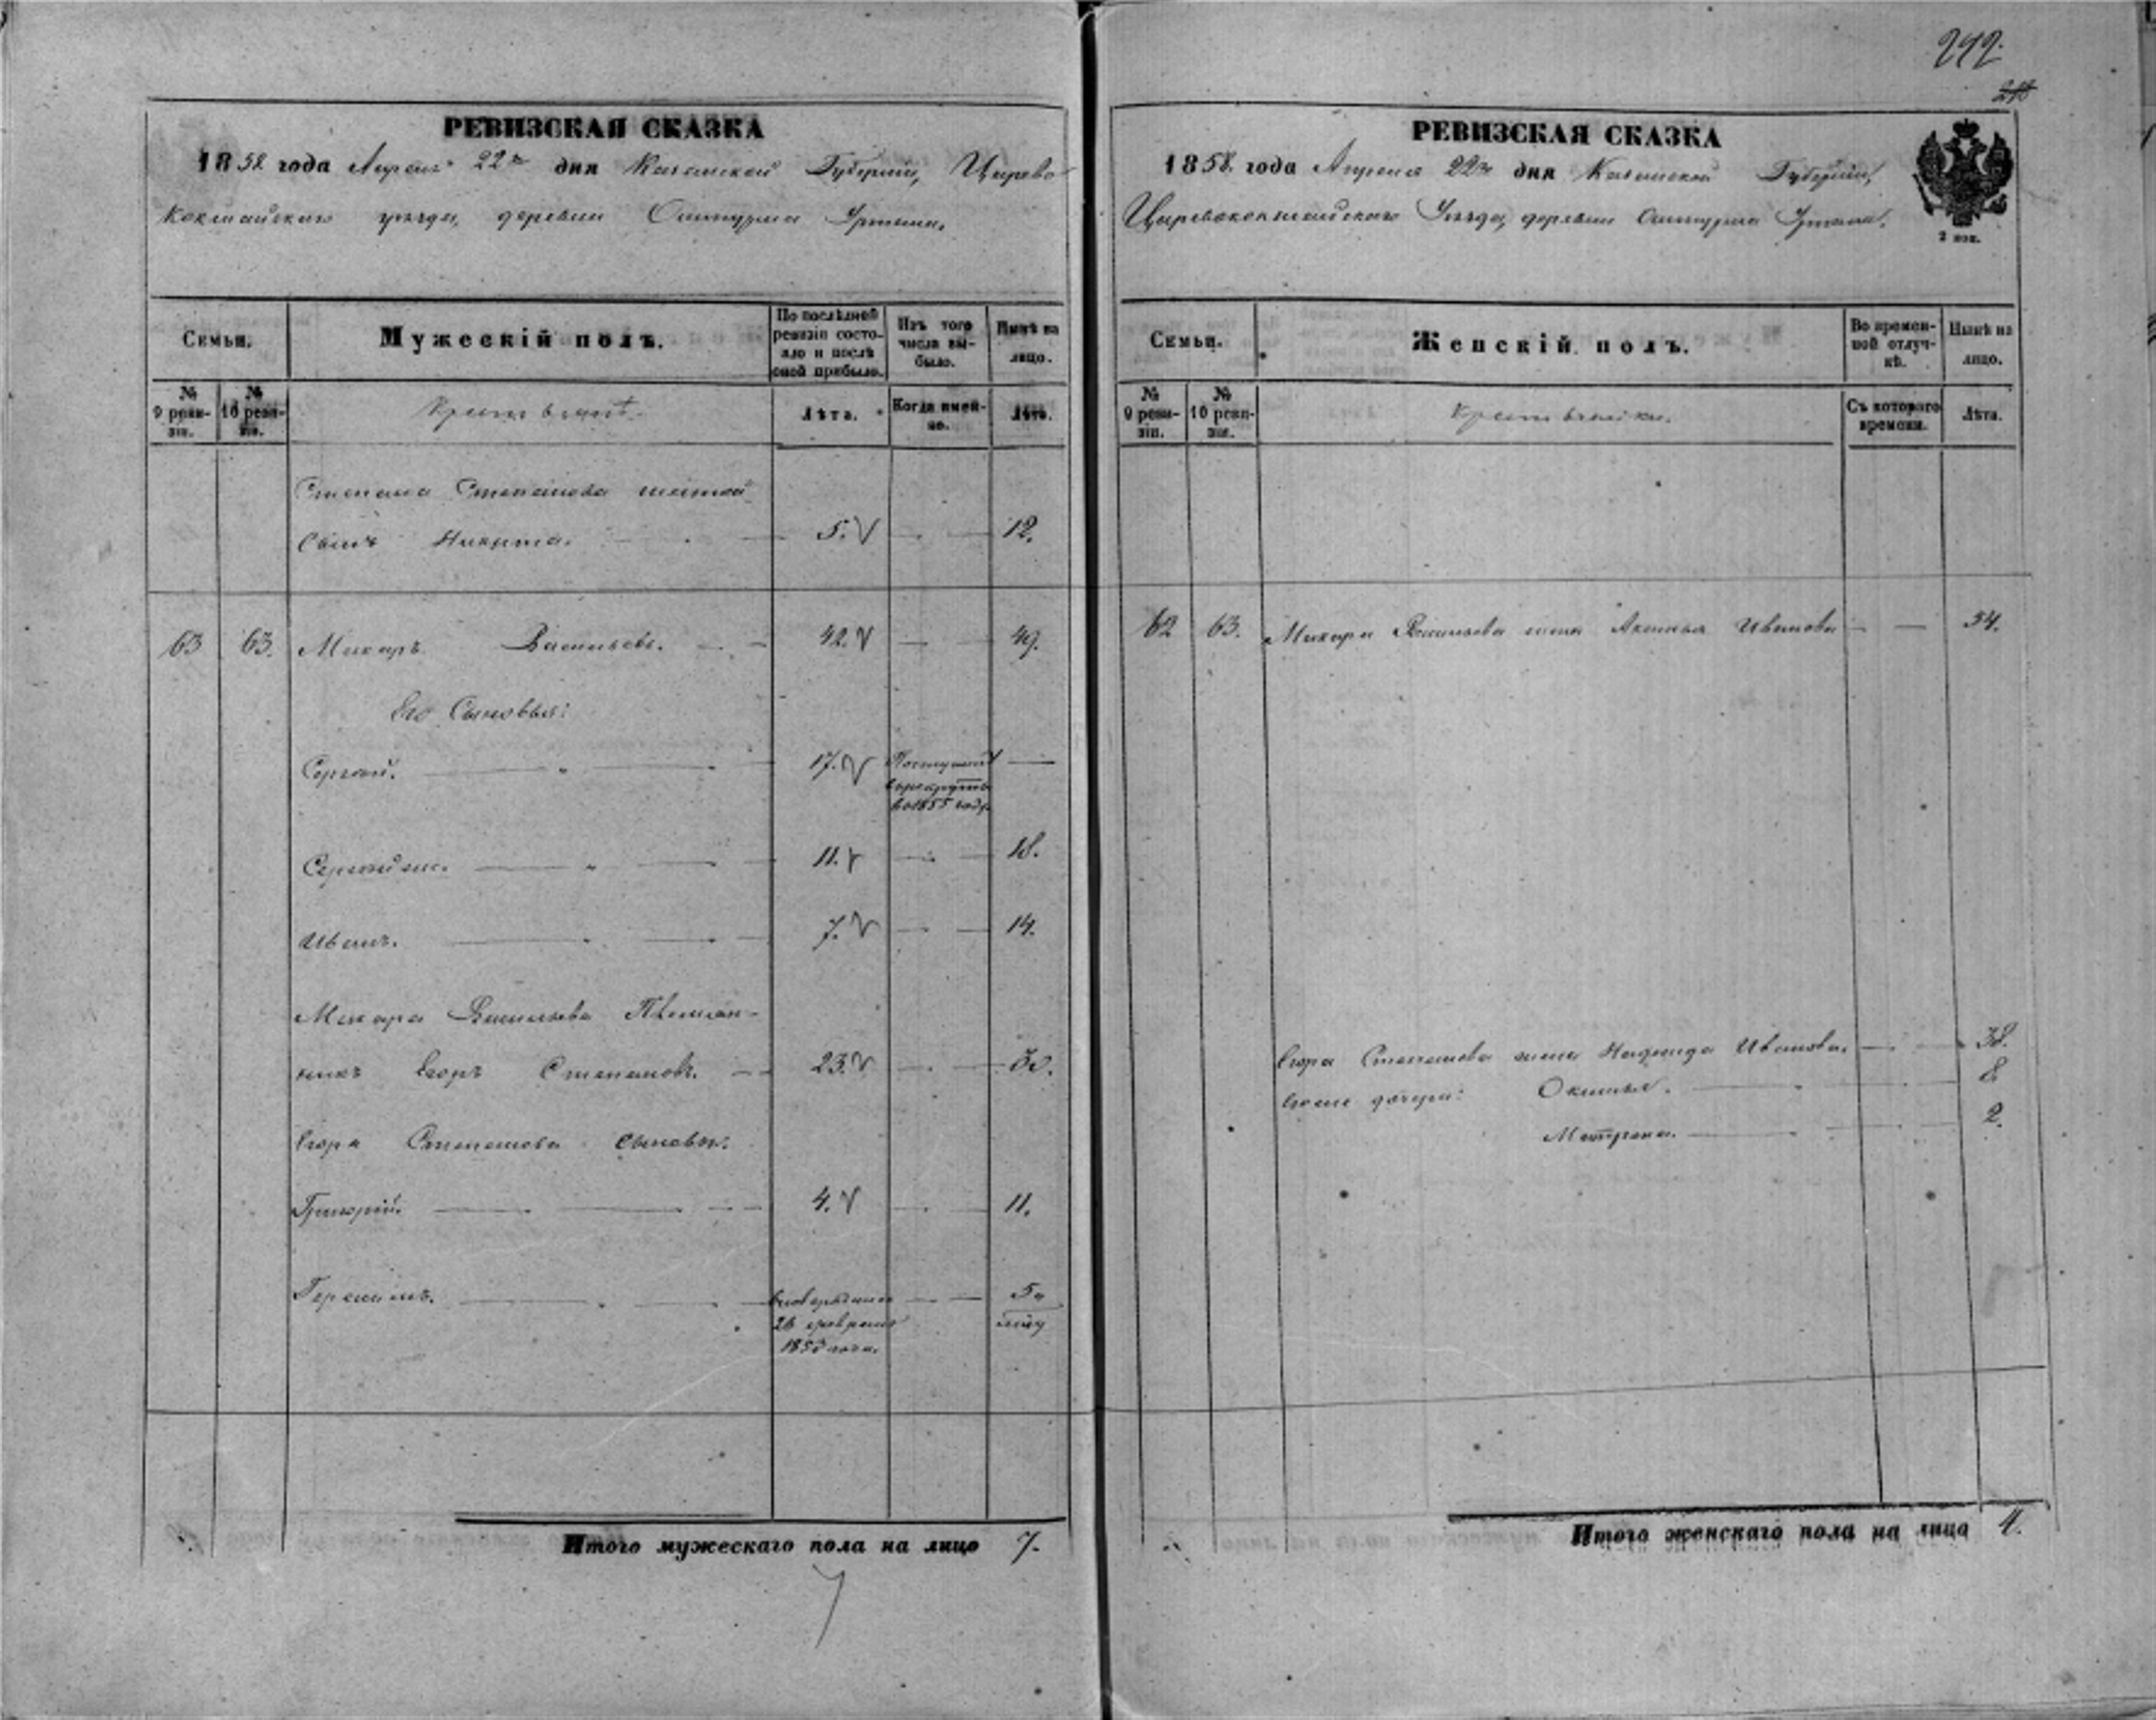 242.
РЕВИЗСКАЯ СКАЗКА
1858 года Апреля 22го дня Казанской Губернии, Царево
кокшайского уезда, деревни
Семьи.
Мужескій полъ.
По послѣдней ревизіи состо-
яло и послѣ
оной прибыло.
Изъ того
числа вы-
было.
Нынѣ на
лицо.
№
9 реви-
зіи.
№
10 реви-
зіи.
Крестьянѣ.
Лѣта.
Когда имен-
но.
Лѣта.
Степана Степанова шестой
Сынъ Никита. 5. 12.
63 63. Макаръ Васильевъ. 42. 49.
Его Сыновья:
Сергей. 17. Поступилъ
в рекруты
в 1855 году.
11. 18.
Иванъ. 7. 14.
Макара Васильева Племян-
никъ Егоръ Степановъ. 23. 30.
Егора Степанова сыновья.
Григорій. 4. 11.
Герасимъ. 5
26 февраля
1853 года.
Итого мужескаго пола на лицо 7.
7
РЕВИЗСКАЯ СКАЗКА
1858. года Апреля 22го дня Казанской Губернии,
Царевококшайского Уезда, деревни
2 коп.
Семьи.
Женскій полъ.
Во времен-
ной отлуч-
кѣ.
Нынѣ на
лицо.
№
9 реви-
зіи.
№
10 реви-
зіи.
Крестьянки.
Съ котораго
времени.
Лѣта.
62 63. Макара Васильева жена Иванова 54.
Егора Степанова жена Надежда Иванова. 38.
дочери: 8
Матрена. 2.
Итого женскаго пола на лицо 4.